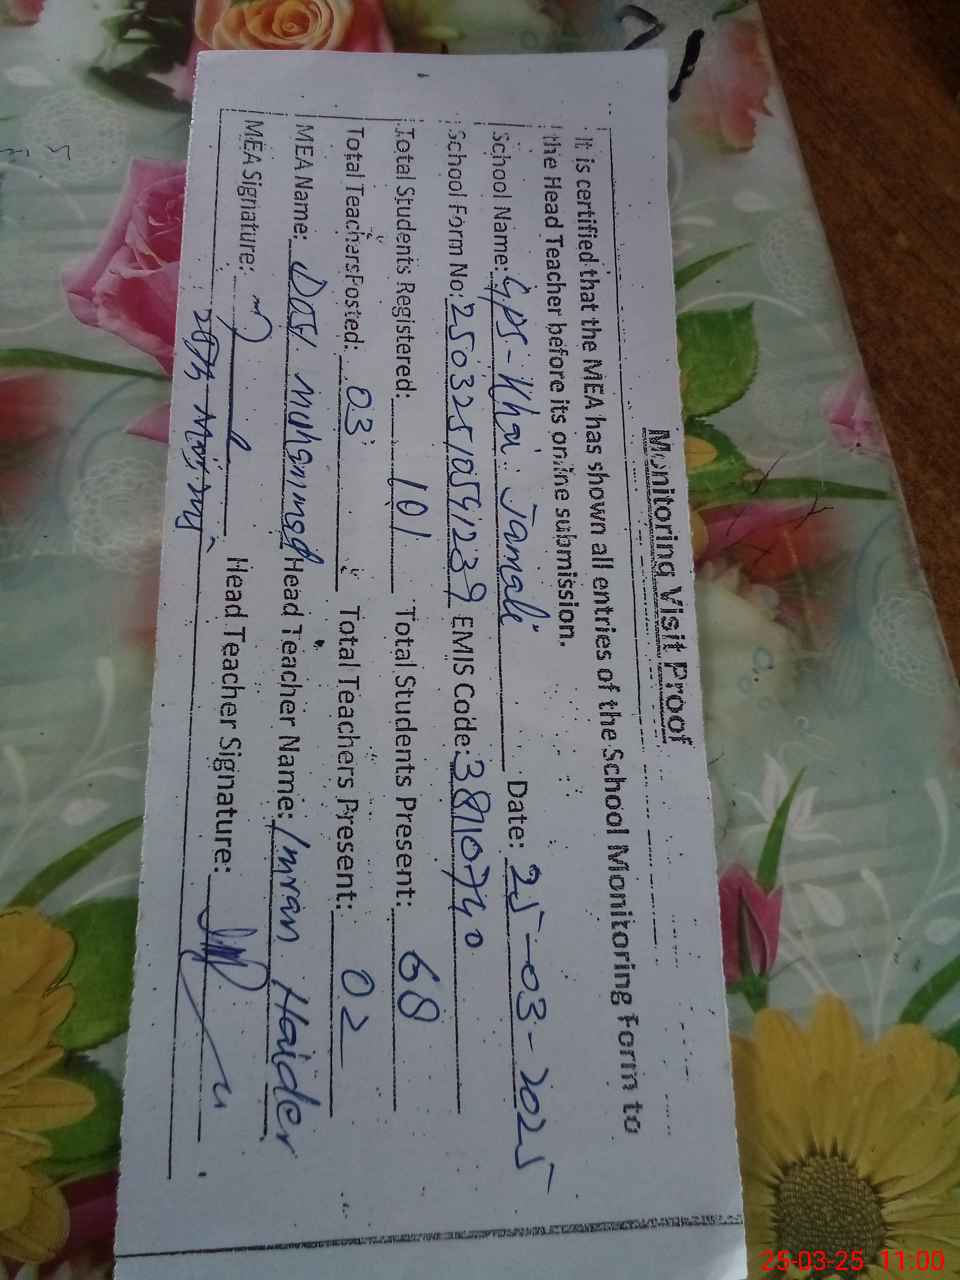 Monitoring Visit Proof
It is certified that the MEA has shown all entries of the School Monitoring Form to
the Head Teacher before its online submission.
School Name: GPS - Khai: Jamali Date: 25-03-2025
School Form No: 25032510591239 EMIS Code: 38110740
Total Students Registered: 101 Total Students Present: 68
Total Teachers Posted: 03 Total Teachers Present: 02
MEA Name: Dost Muhammad Head Teacher Name: Imran Haider
MEA Signature: Head Teacher Signature:
25-03-25 11:00